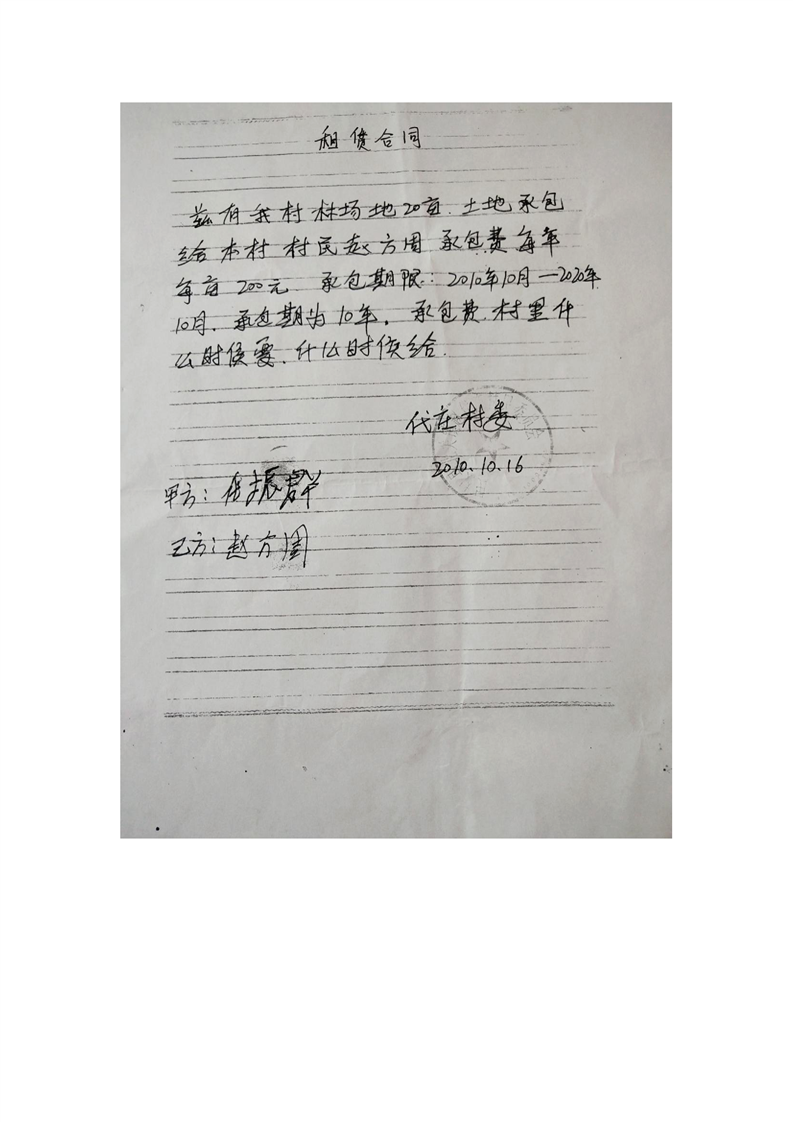 租赁合同
兹有我村林场地20亩.土地承包
给本村 村民赵方周 承包费每年
每亩200元 承包期限:2010年10月—2020年
10月.承包期为10年. 承包费.村里什
么时侯要.什么时侯给.
代庄村委
2010.10.16
甲方:任振群
乙方:赵方周